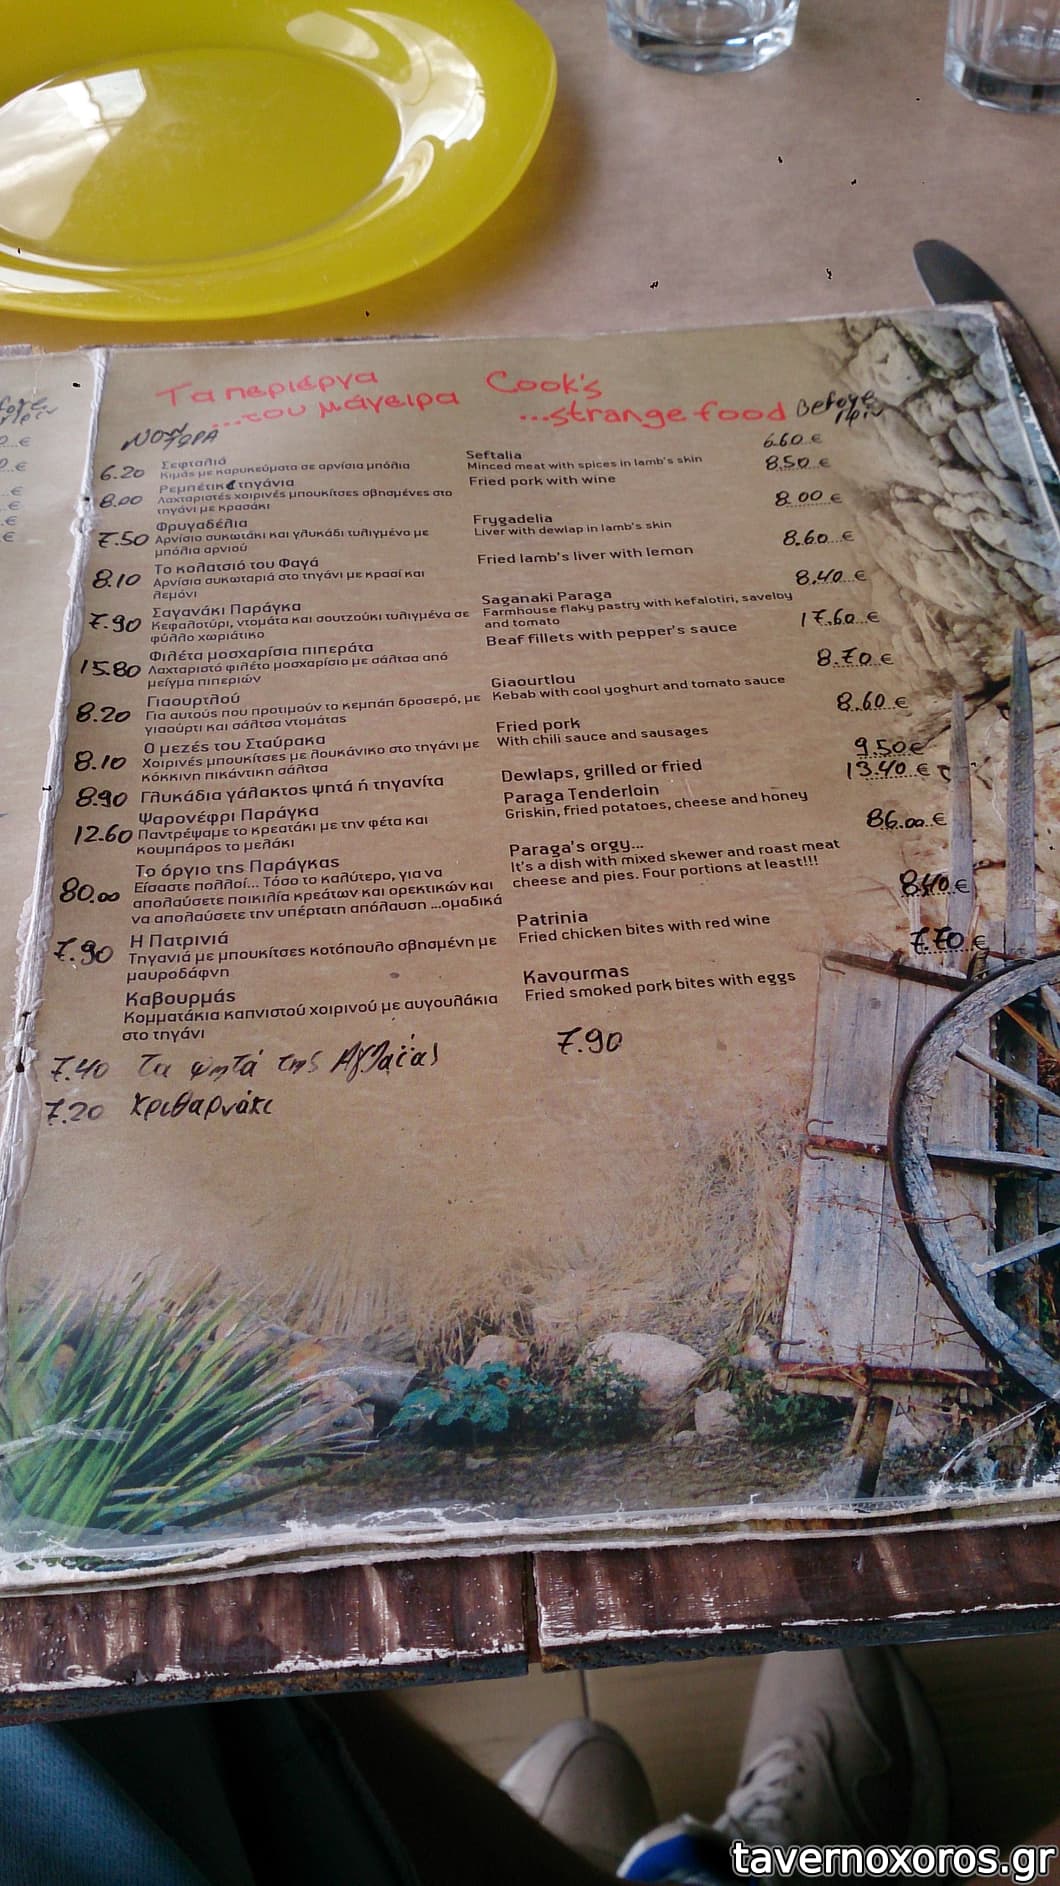 Τα περίεργα
...του μάγειρα
Cook's
...strange food
Before
πριν
NOW
ΤΩΡΑ
6.20 Σεφταλιά
Κιμάς με καρυκεύματα σε αρνίσια μπόλια
Seftalia
Minced meat with spices in lamb's skin
6.60 €
8.00 Ρεμπέτικα τηγάνια
Λαχταριστές χοιρινές μπουκίτσες σβησμένες στο
τηγάνι με κρασάκι
Fried pork with wine
8.50 €
7.50 Φρυγαδέλια
Αρνίσιο συκωτάκι και γλυκάδι τυλιγμένο με
μπόλια αρνιού
Frygadelia
Liver with dewlap in lamb's skin
8.00 €
8.10 Το κολατσιό του Φαγά
Αρνίσια συκωταριά στο τηγάνι με κρασί και
λεμόνι
Fried lamb's liver with lemon
8.60 €
7.90 Σαγανάκι Παράγκα
Κεφαλοτύρι, ντομάτα και σουτζούκι τυλιγμένα σε
φύλλο χωριάτικο
Saganaki Paraga
Farmhouse flaky pastry with kefalotiri, savelby
and tomato
8.40 €
15.80 Φιλέτα μοσχαρίσια πιπεράτα
Λαχταριστό φιλέτο μοσχαρίσιο με σάλτσα από
μείγμα πιπεριών
Beaf fillets with pepper's sauce
17.60 €
8.20 Γιαουρτλού
Για αυτούς που προτιμούν το κεμπάπ δροσερό, με
γιαούρτι και σάλτσα ντομάτας
Giaourtlou
Kebab with cool yoghurt and tomato sauce
8.70 €
8.10 Ο μεζές του Σταύρακα
Χοιρινές μπουκίτσες με λουκάνικο στο τηγάνι με
κόκκινη πικάντικη σάλτσα
Fried pork
With chili sauce and sausages
8.60 €
8.90 Γλυκάδια γάλακτος ψητά ή τηγανίτα
Dewlaps, grilled or fried
9.50 €
12.60 Ψαρονέφρι Παράγκα
Παντρέψαμε το κρεατάκι με την φέτα και
κουμπάρος το μελάκι
Paraga Tenderloin
Griskin, fried potatoes, cheese and honey
13.40 €
80.00 Το όργιο της Παράγκας
Είσαστε πολλοί... Τόσο το καλύτερο, για να
απολαύσετε ποικιλία κρεάτων και ορεκτικών και
να απολαύσετε την υπέρτατη απόλαυση ...ομαδικά
Paraga's orgy...
It's a dish with mixed skewer and roast meat
cheese and pies. Four portions at least!!!
86.00 €
7.90 Η Πατρινιά
Τηγανιά με μπουκίτσες κοτόπουλο σβησμένη με
μαυροδάφνη
Patrinia
Fried chicken bites with red wine
8.40 €
Καβουρμάς
Κομματάκια καπνιστού χοιρινού με αυγουλάκια
στο τηγάνι
Kavourmas
Fried smoked pork bites with eggs
7.70 €
7.40 Τα ψητά της Αγλαΐας 7.90
7.20 Κριθαρνάκι
tavernoxoros.gr